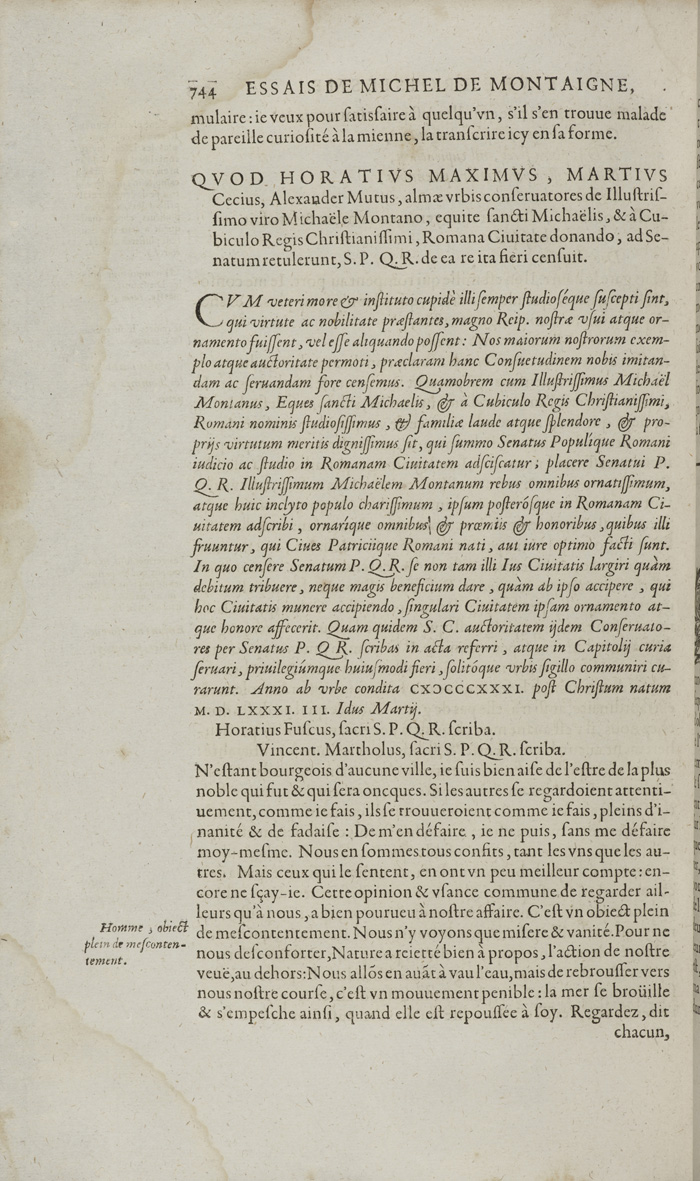 744 ESSAIS DE MICHEL DE MONTAIGNE,
mulaire: ie veux pour ſatisfaire à quelqu'vn, s'il s'en trouue malade
de pareille curioſité à la mienne, la tranſcrire icy en ſa forme.
QVOD HORATIVS MAXIMVS, MARTIVS
Cecius, Alexander Mutus, almæ vrbis conſeruatores de Illuſtriſ-
ſimo viro Michaële Montano, equite ſancti Michaëlis, & à Cu-
biculo Regis Chriſtianiſſimi, Romana Ciuitate donando, ad Se-
natum retulerunt, S. P. Q. R. de ea re ita fieri cenſuit.
CVM veteri more & inſtituto cupidè illi ſemper ſtudioſéque ſuſcepti ſint,
qui virtute ac nobilitate præſtantes, magno Reip. noſtræ vſui atque or-
namento fuiſſent, vel eſſe aliquando poſſent: Nos maiorum noſtrorum exem-
plo atque auctoritate permoti, præclaram hanc Conſuetudinem nobis imitan-
dam ac ſeruandam fore cenſemus. Quamobrem cum Illuſtriſſimus Michaël
Montanus, Eques ſancti Michaelis, & à Cubiculo Regis Chriſtianiſſimi,
Romani nominis ſtudioſiſſimus, & familiæ laude atque ſplendore, & pro-
prijs virtutum meritis digniſſimus ſit, qui ſummo Senatus Populique Romani
iudicio ac ſtudio in Romanam Ciuitatem adſciſcatur; placere Senatui P.
Q. R. Illuſtriſſimum Michaëlem Montanum rebus omnibus ornatiſſimum,
atque huic inclyto populo chariſſimum, ipſum poſteróſque in Romanam Ci-
uitatem adſcribi, ornaríque omnibus & præmiis & honoribus, quibus illi
fruuntur, qui Ciues Patriciique Romani nati, aut iure optimo facti ſunt.
In quo cenſere Senatum P. Q. R. ſe non tam illi Ius Ciuitatis largiri quàm
debitum tribuere, neque magis beneficium dare, quàm ab ipſo accipere, qui
hoc Ciuitatis munere accipiendo, ſingulari Ciuitatem ipſam ornamento at-
que honore affecerit. Quam quidem S. C. auctoritatem ijdem Conſeruato-
res per Senatus P. Q R. ſcribas in acta referri, atque in Capitolij curia
ſeruari, priuilegiúmque huiuſmodi fieri, ſolitóque vrbis ſigillo communiri cu-
rarunt. Anno ab vrbe condita CXƆCCCXXXI. poſt Chriſtum natum
M. D. LXXXI. III. Idus Martij.
Horatius Fuſcus, ſacri S. P. Q. R. ſcriba.
Vincent. Martholus, ſacri S. P. Q. R. ſcriba.
N'eſtant bourgeois d'aucune ville, ie ſuis bien aiſe de l'eſtre de la plus
noble qui fut & qui ſera oncques. Si les autres ſe regardoient attenti-
uement, comme ie fais, ils ſe trouueroient comme ie fais, pleins d'i-
nanité & de fadaiſe: De m'en défaire, ie ne puis, ſans me défaire
moy-meſme. Nous en ſommes tous confits, tant les vns que les au-
tres. Mais ceux qui le ſentent, en ont vn peu meilleur compte: en-
core ne ſçay-ie. Cette opinion & vſance commune de regarder ail-
leurs qu'à nous, a bien pourueu à noſtre affaire. C'eſt vn obiect plein
Homme, obiect
plein de meſconten-
tement.
de meſcontentement. Nous n'y voyons que miſere & vanité. Pour ne
nous deſconforter, Nature a reietté bien à propos, l'action de noſtre
veuë, au dehors: Nous allõs en auãt à vau l'eau, mais de rebrouſſer vers
nous noſtre courſe, c'eſt vn mouuement penible: la mer ſe broüille
& s'empeſche ainſi, quand elle eſt repouſſée à ſoy. Regardez, dit
chacun,